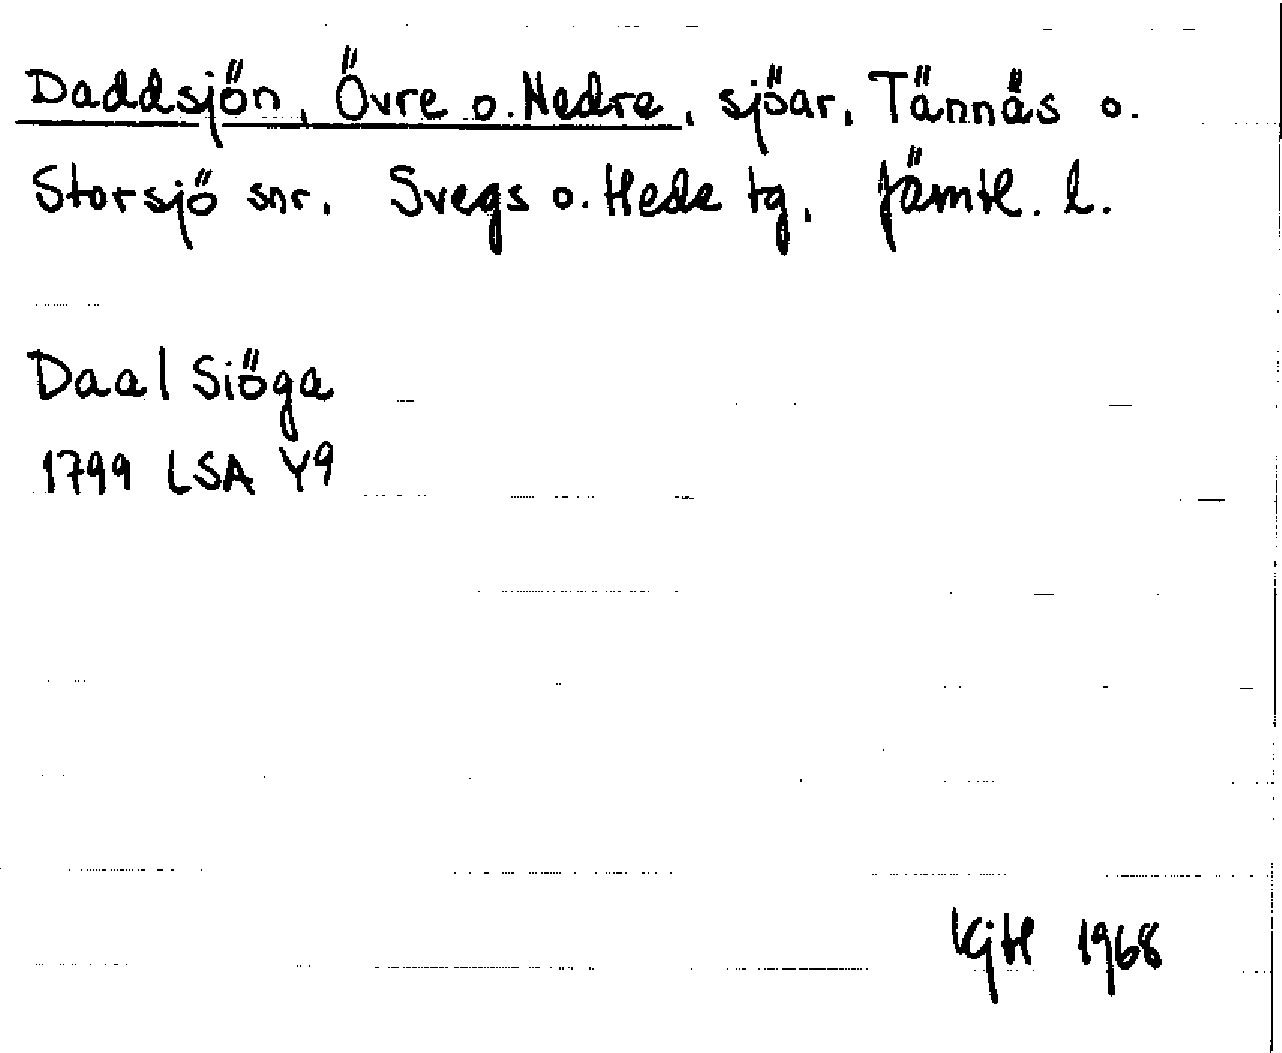 Daddsjön, Övre o. Nedre, sjöar, Tännäs o.
Storsjö snr. Svegs o. Hede tg, Jämtl. l.
Daal Siöga
1799 LSA Y9
1968